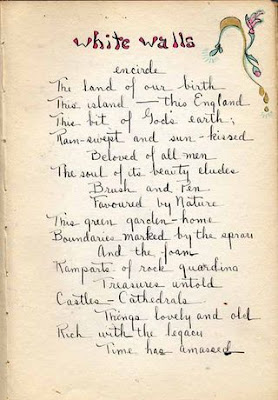 white walls
encircle
The land of our birth
This island — this England
This bit of God's earth;
Rain-swept and sun-kissed
Beloved of all men
The soul of its beauty eludes
Brush and Pen
Favoured by Nature
This green garden-home
Boundaries marked by the spray
And the foam
Ramparts of rock guarding
Treasures untold
Castles - Cathedrals
Things lovely and old
Rich with the legacy
Time has amassed